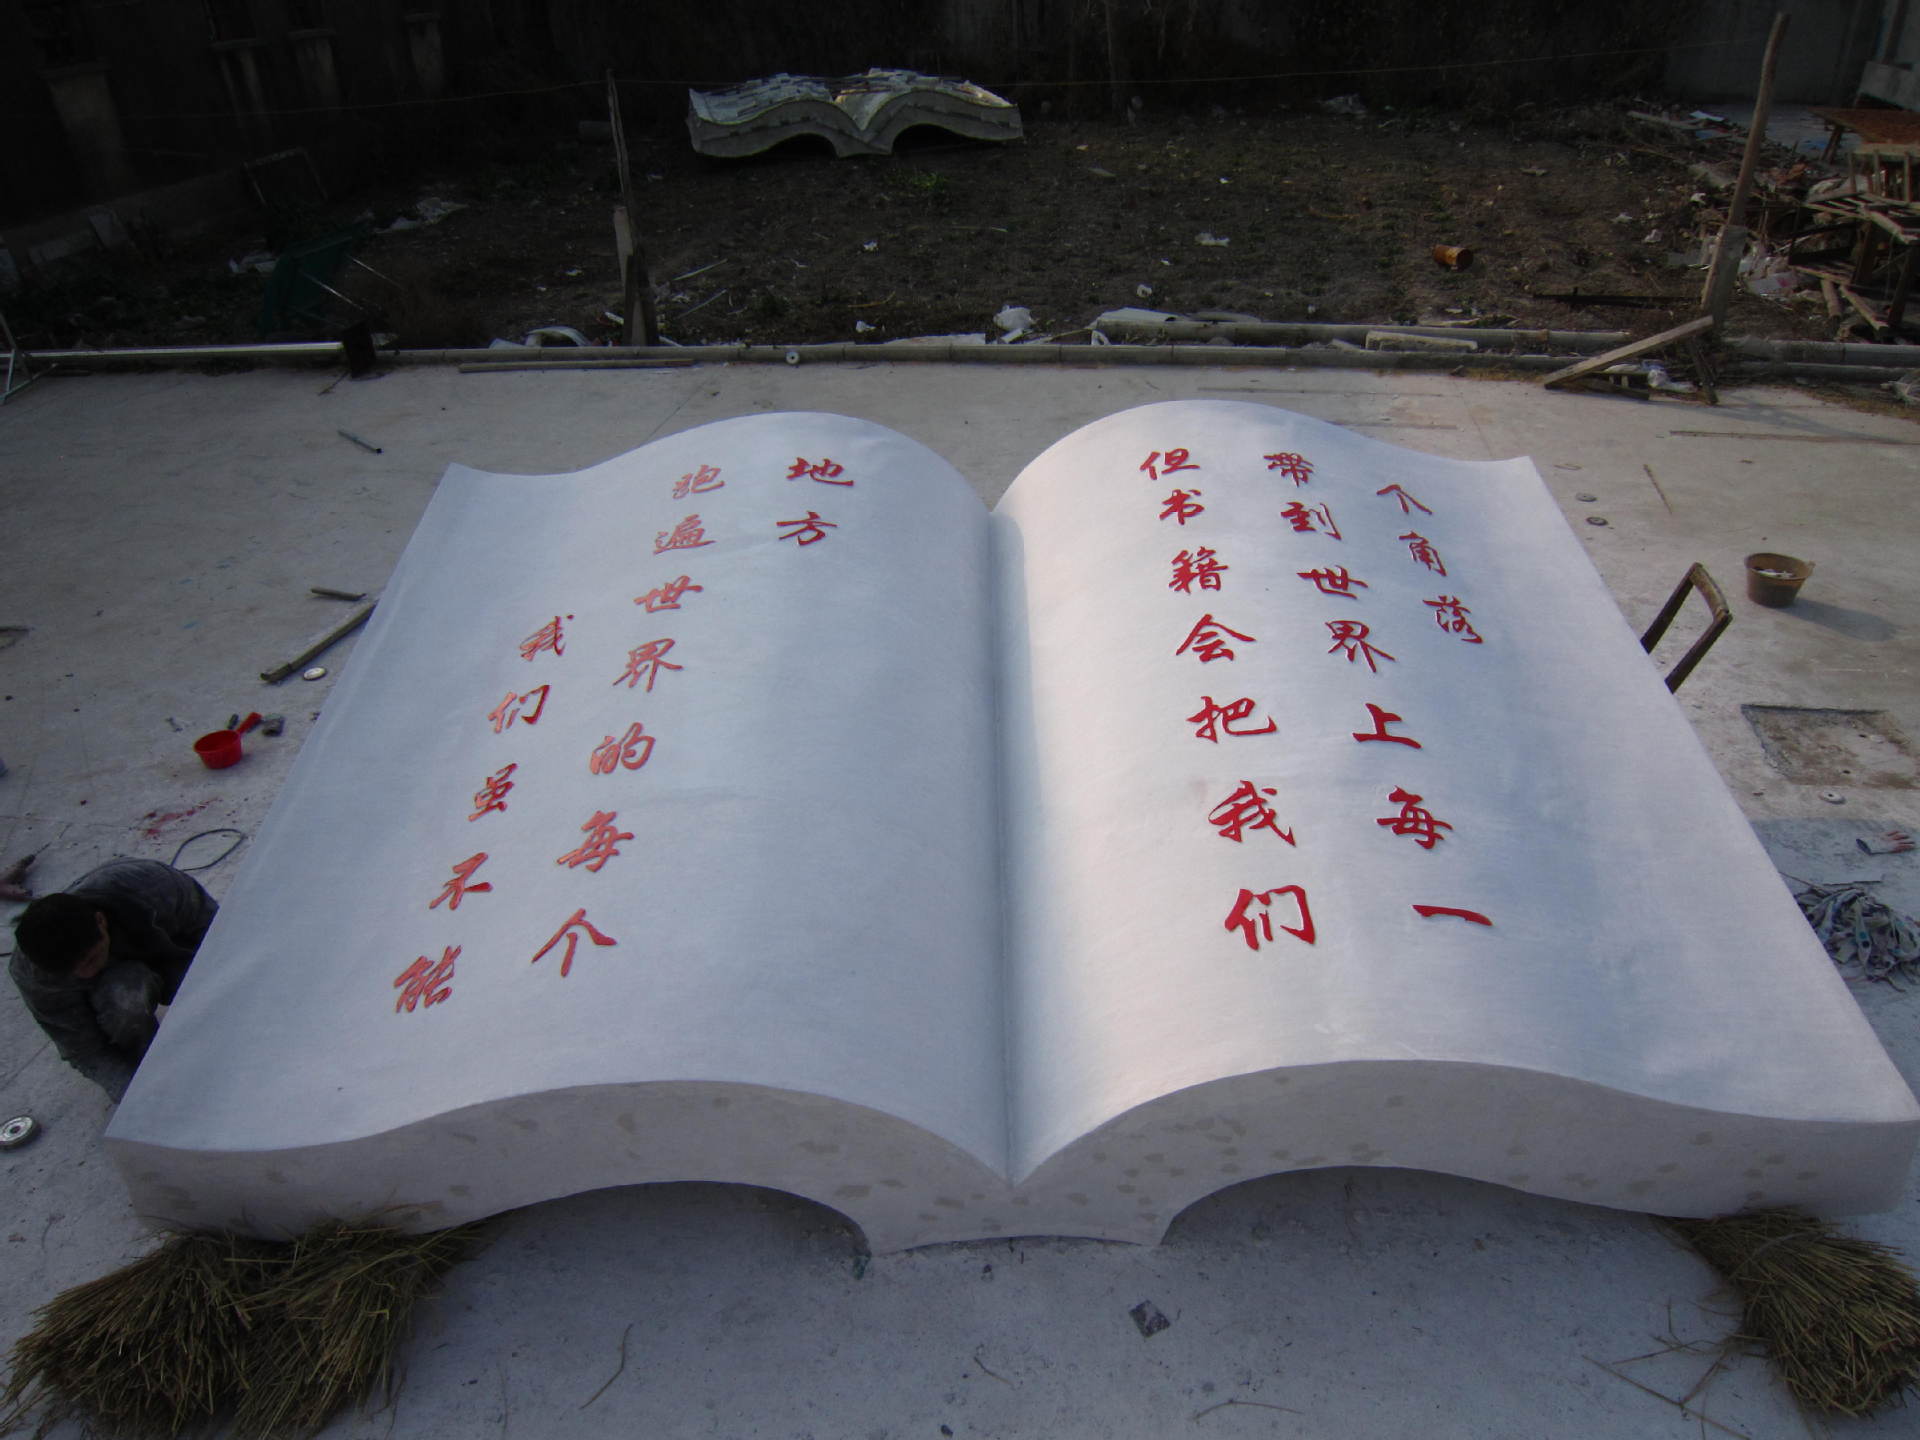 我们虽不能
跑遍世界的每个
地方
但书籍会把我们
带到世界上每一
个角落